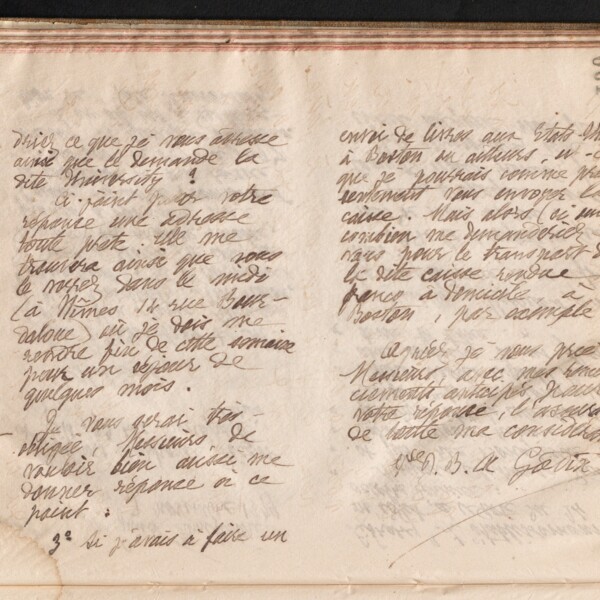 drier ce que je vous adresse
ainsi que le demande la
dite University ?
Ci-joint pour votre
réponse une adresse
toute prête. Elle me
trouvera ainsi que vous
le voyez dans le midi
(à Nîmes 14 rue Bour-
daloue) où je dois me
rendre fin de cette semaine
pour un séjour de
quelques mois.
Je vous serai très
obligée, Messieurs, de
vouloir bien aussi me
donner réponse à ce
point :
3º Si j'avais à faire un
envoi de livres aux Etats-Un
à Boston ou ailleurs,
que je pourrais comme pré
sentement vous envoyer la
caisse. Mais alors (si
combien me demanderiez
vous pour le transport d
la dite caisse rendue
franco à domicile, à
Boston, par exemple
Agréez je vous prie
Messieurs, avec mes remer
ciements anticipés pour
votre réponse, l'assura
de toute ma considéra
Vve A. B. A Godin